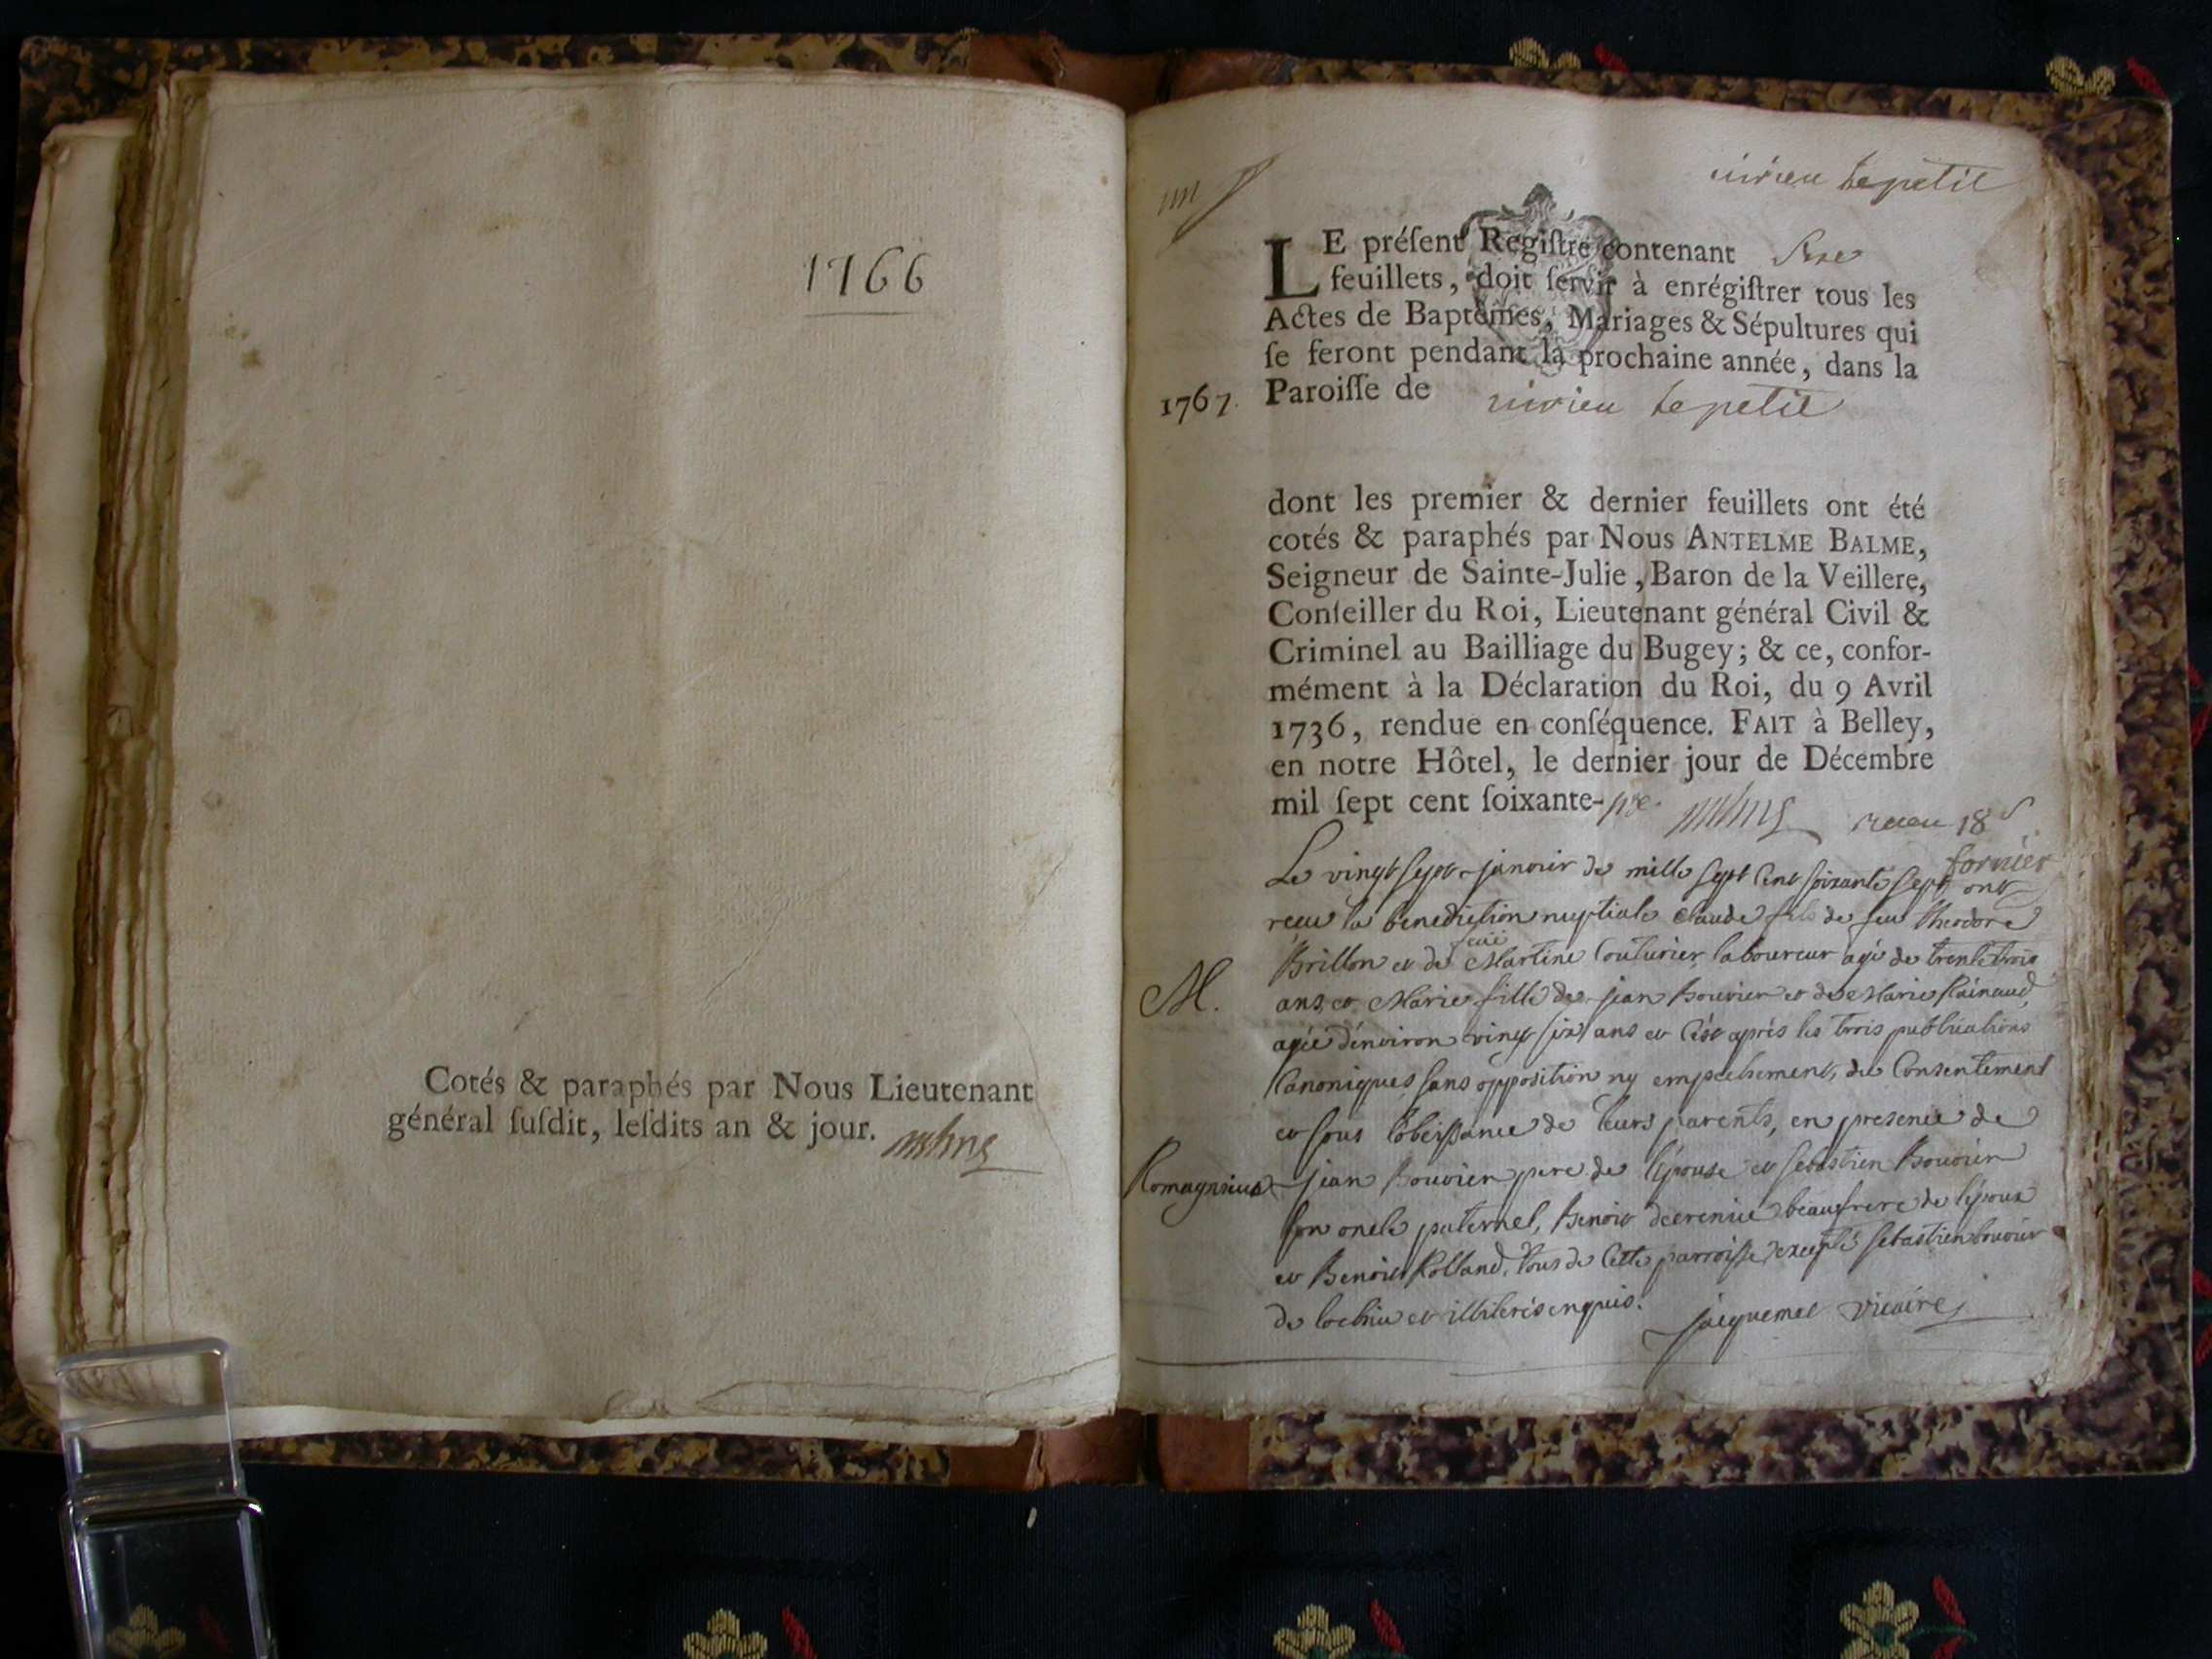 1766
Cotés & paraphés par Nous Lieutenant
général ſuſdit, leſdits an & jour.
virieu le petit
LE préſent Regiſtre contenant
feuillets, doit ſervir à enrégiſtrer tous les
Actes de Baptêmes, Mariages & Sépultures qui
ſe feront pendant la prochaine année, dans la
1767. Paroiſſe de virieu le petit
dont les premier & dernier feuillets ont été
cotés & paraphés par Nous ANTELME BALME,
Seigneur de Sainte-Julie, Baron de la Veillere,
Conſeiller du Roi, Lieutenant général Civil &
Criminel au Bailliage du Bugey; & ce, confor-
mément à la Déclaration du Roi, du 9 Avril
1736, rendue en conſéquence. FAIT à Belley,
en notre Hôtel, le dernier jour de Décembre
mil ſept cent ſoixante-
receu 18 s
fornier
Le vingt sept janvier de mille sept cent soixante sept ont
reçu la benediction nuptiale Claude fils de feu theodore
Brillon et de Martine Couturier laboureur agé de trente trois
M. ans, et Marie fille de jean Bouvier et de Marie Rainaud
agée d'environ vingt six ans et c'est après les trois publications
Canoniques sans opposition ny empechement, du Consentement
et sous l'obeissance de leurs parents, en presence de
Romagnieu jean Bouvier pere de l'épouse et sebastien Bouvier
son oncle paternel, Benoit beaufrere de l'époux
et Benoit Rolland. tous de Cette parroisse excepté sebastien bouvier
de lochieu et illiterés enquis.
jacquemet vicaire